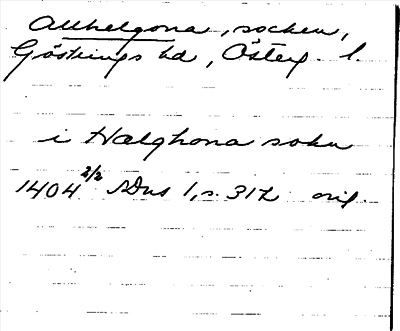 Allhelgona, socken,
Göstrings hd, Österg. l.
i Hælghona sokn
1404 2/2 SDns 1, s. 312 orig.